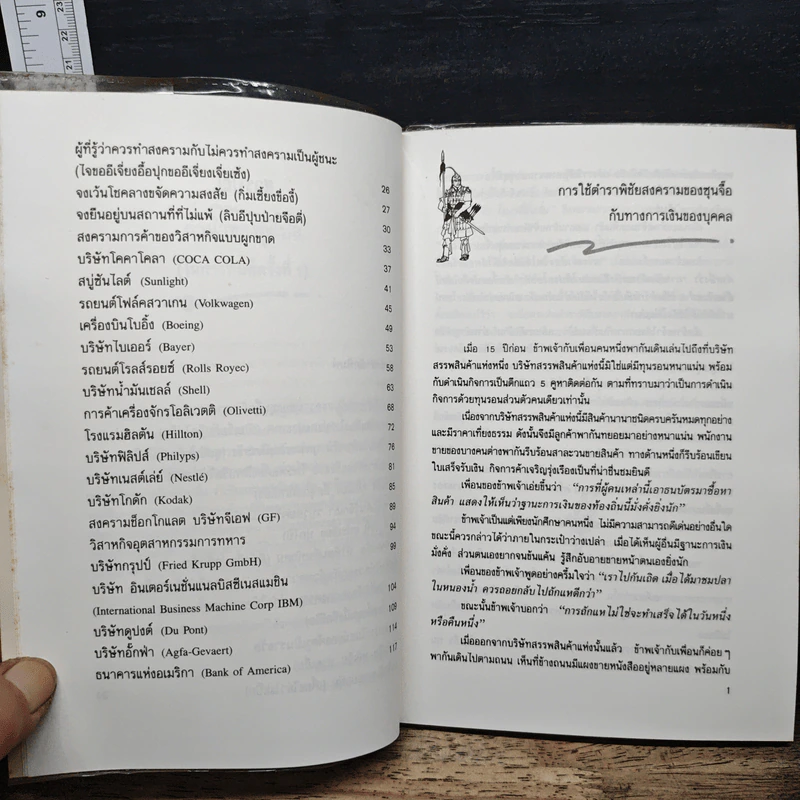 9
23
22
21
ผู้ที่รู้ว่าควรทำสงครามกับไม่ควรทำสงครามเป็นผู้ชนะ
(ไจขออีเจี่ยงอื้อปุกขออีเจี่ยงเจี่ยเซ้ง) 26
จงเว้นโชคลางขจัดความสงสัย (กิ่มเซี้ยงขื่องี้) 27
จงยืนอยู่บนสถานที่ที่ไม่แพ้ (ลิบอีปุบป่ายจือตี่) 30
สงครามการค้าของวิสาหกิจแบบผูกขาด 33
บริษัทโคคาโคลา (COCA COLA) 37
สบู่ซันไลต์ (Sunlight) 41
รถยนต์โฟล์คสวาเกน (Volkwagen) 45
เครื่องบินโบอิ้ง (Boeing) 49
บริษัทไบเออร์ (Bayer) 53
รถยนต์โรลส์รอยซ์ (Rolls Royec) 58
บริษัทน้ำมันเชลล์ (Shell) 63
การค้าเครื่องจักรโอลิเวตติ (Olivetti) 68
โรงแรมฮิลตัน (Hillton) 72
บริษัทฟิลิปส์ (Philyps) 76
บริษัทเนสต์เล่ย์ (Nestlé) 81
บริษัทโกดัก (Kodak) 85
สงครามช็อกโกแลต บริษัทจีเอฟ (GF) 89
วิสาหกิจอุตสาหกรรมการทหาร 94
บริษัทกรุปป์ (Fried Krupp GmbH) 99
บริษัท อินเตอร์เนชั่นแนลบิสซิเนสแมชิน
(International Business Machine Corp IBM) 104
บริษัทดูปงต์ (Du Pont) 109
บริษัทอั๊กฟ่า (Agfa-Gevaert) 114
ธนาคารแห่งอเมริกา (Bank of America) 117
การใช้ตำราพิชัยสงครามของซุนจื้อ
กับทางการเงินของบุคคล
เมื่อ 15 ปีก่อน ข้าพเจ้ากับเพื่อนคนหนึ่งพากันเดินเล่นไปถึงที่บริษัท
สรรพสินค้าแห่งหนึ่ง บริษัทสรรพสินค้าแห่งนี้มิใช่แต่มีทุนรอนหนาแน่น พร้อม
กับดำเนินกิจการเป็นตึกแถว 5 คูหาติดต่อกัน ตามที่ทราบมาว่าเป็นการดำเนิน
กิจการด้วยทุนรอนส่วนตัวคนเดียวเท่านั้น
เนื่องจากบริษัทสรรพสินค้าแห่งนี้มีสินค้านานาชนิดครบครันหมดทุกอย่าง
และมีราคาเที่ยงธรรม ดังนั้นจึงมีลูกค้าพากันทยอยมาอย่างหนาแน่น พนักงาน
ขายของบางคนต่างพากันรีบร้อนสาละวนขายสินค้า ทางด้านหนึ่งก็รีบร้อนเขียน
ใบเสร็จรับเงิน กิจการค้าเจริญรุ่งเรืองเป็นที่น่าชื่นชมยินดี
เพื่อนของข้าพเจ้าเอ่ยขึ้นว่า “การที่ผู้คนเหล่านี้เอาธนบัตรมาซื้อหา
สินค้า แสดงให้เห็นว่าฐานะการเงินของท้องถิ่นนี้มั่งคั่งยิ่งนัก”
ข้าพเจ้าเป็นแต่เพียงนักศึกษาคนหนึ่ง ไม่มีความสามารถดีเด่นอย่างอื่นใด
ขณะนี้ควรกล่าวได้ว่าภายในกระเป๋าว่างเปล่า เมื่อได้เห็นผู้อื่นมีฐานะการเงิน
มั่งคั่ง ส่วนตนเองยากจนข้นแค้น รู้สึกอับอายขายหน้าตนเองยิ่งนัก
เพื่อนของข้าพเจ้าพูดอย่างครึ้มใจว่า “เราไปกันเถิด เมื่อได้มาชมปลา
ในหนองน้ำ ควรถอยกลับไปถักแหดีกว่า”
ขณะนั้นข้าพเจ้าบอกว่า “การถักแห ไม่ใช่จะทำเสร็จได้ในวันหนึ่ง
หรือคืนหนึ่ง”
เมื่อออกจากบริษัทสรรพสินค้าแห่งนั้นแล้ว ข้าพเจ้ากับเพื่อนก็ค่อย ๆ
พากันเดินไปตามถนน เห็นที่ข้างถนนมีแผงขายหนังสืออยู่หลายแผง พร้อมกับ
1